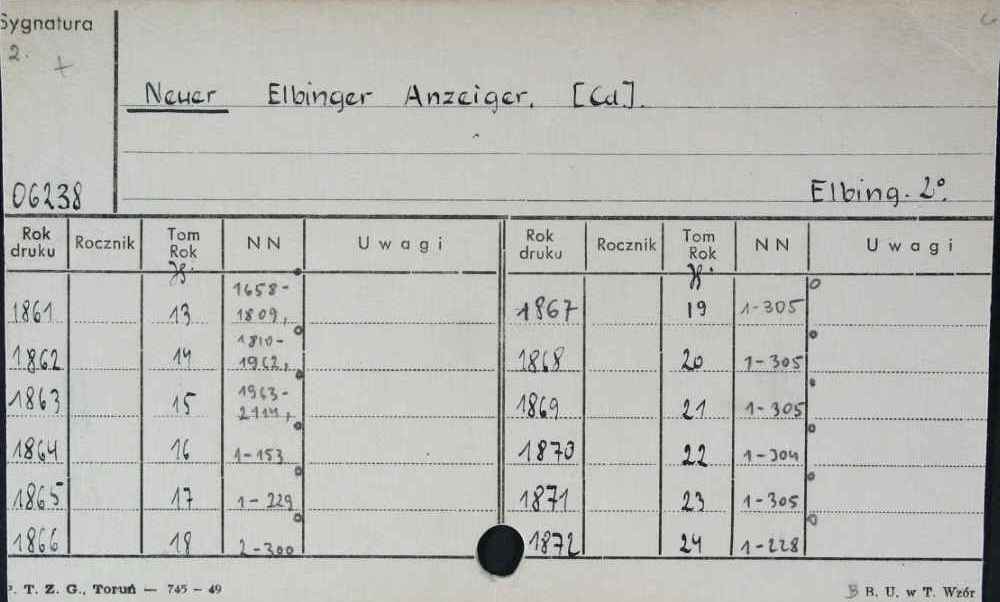 Sygnatura
2. +
Neuer Elbinger Anzeiger. [Cd].
06238
Elbing. 2°.
Rok druku Rocznik Tom Rok NN Uwagi Rok druku Rocznik Tom Rok NN Uwagi
Jg. Jg.
1861 13 1658-1809, 1867 19 1-305
1862 14 1810-1962, 1868 20 1-305
1863 15 1963-2114, 1869 21 1-305
1864 16 1-153 1870 22 1-304
1865 17 1-229 1871 23 1-305
1866 18 2-300 1872 24 1-228
P. T. Z. G., Toruń — 745 — 49
B. U. w T. Wzór